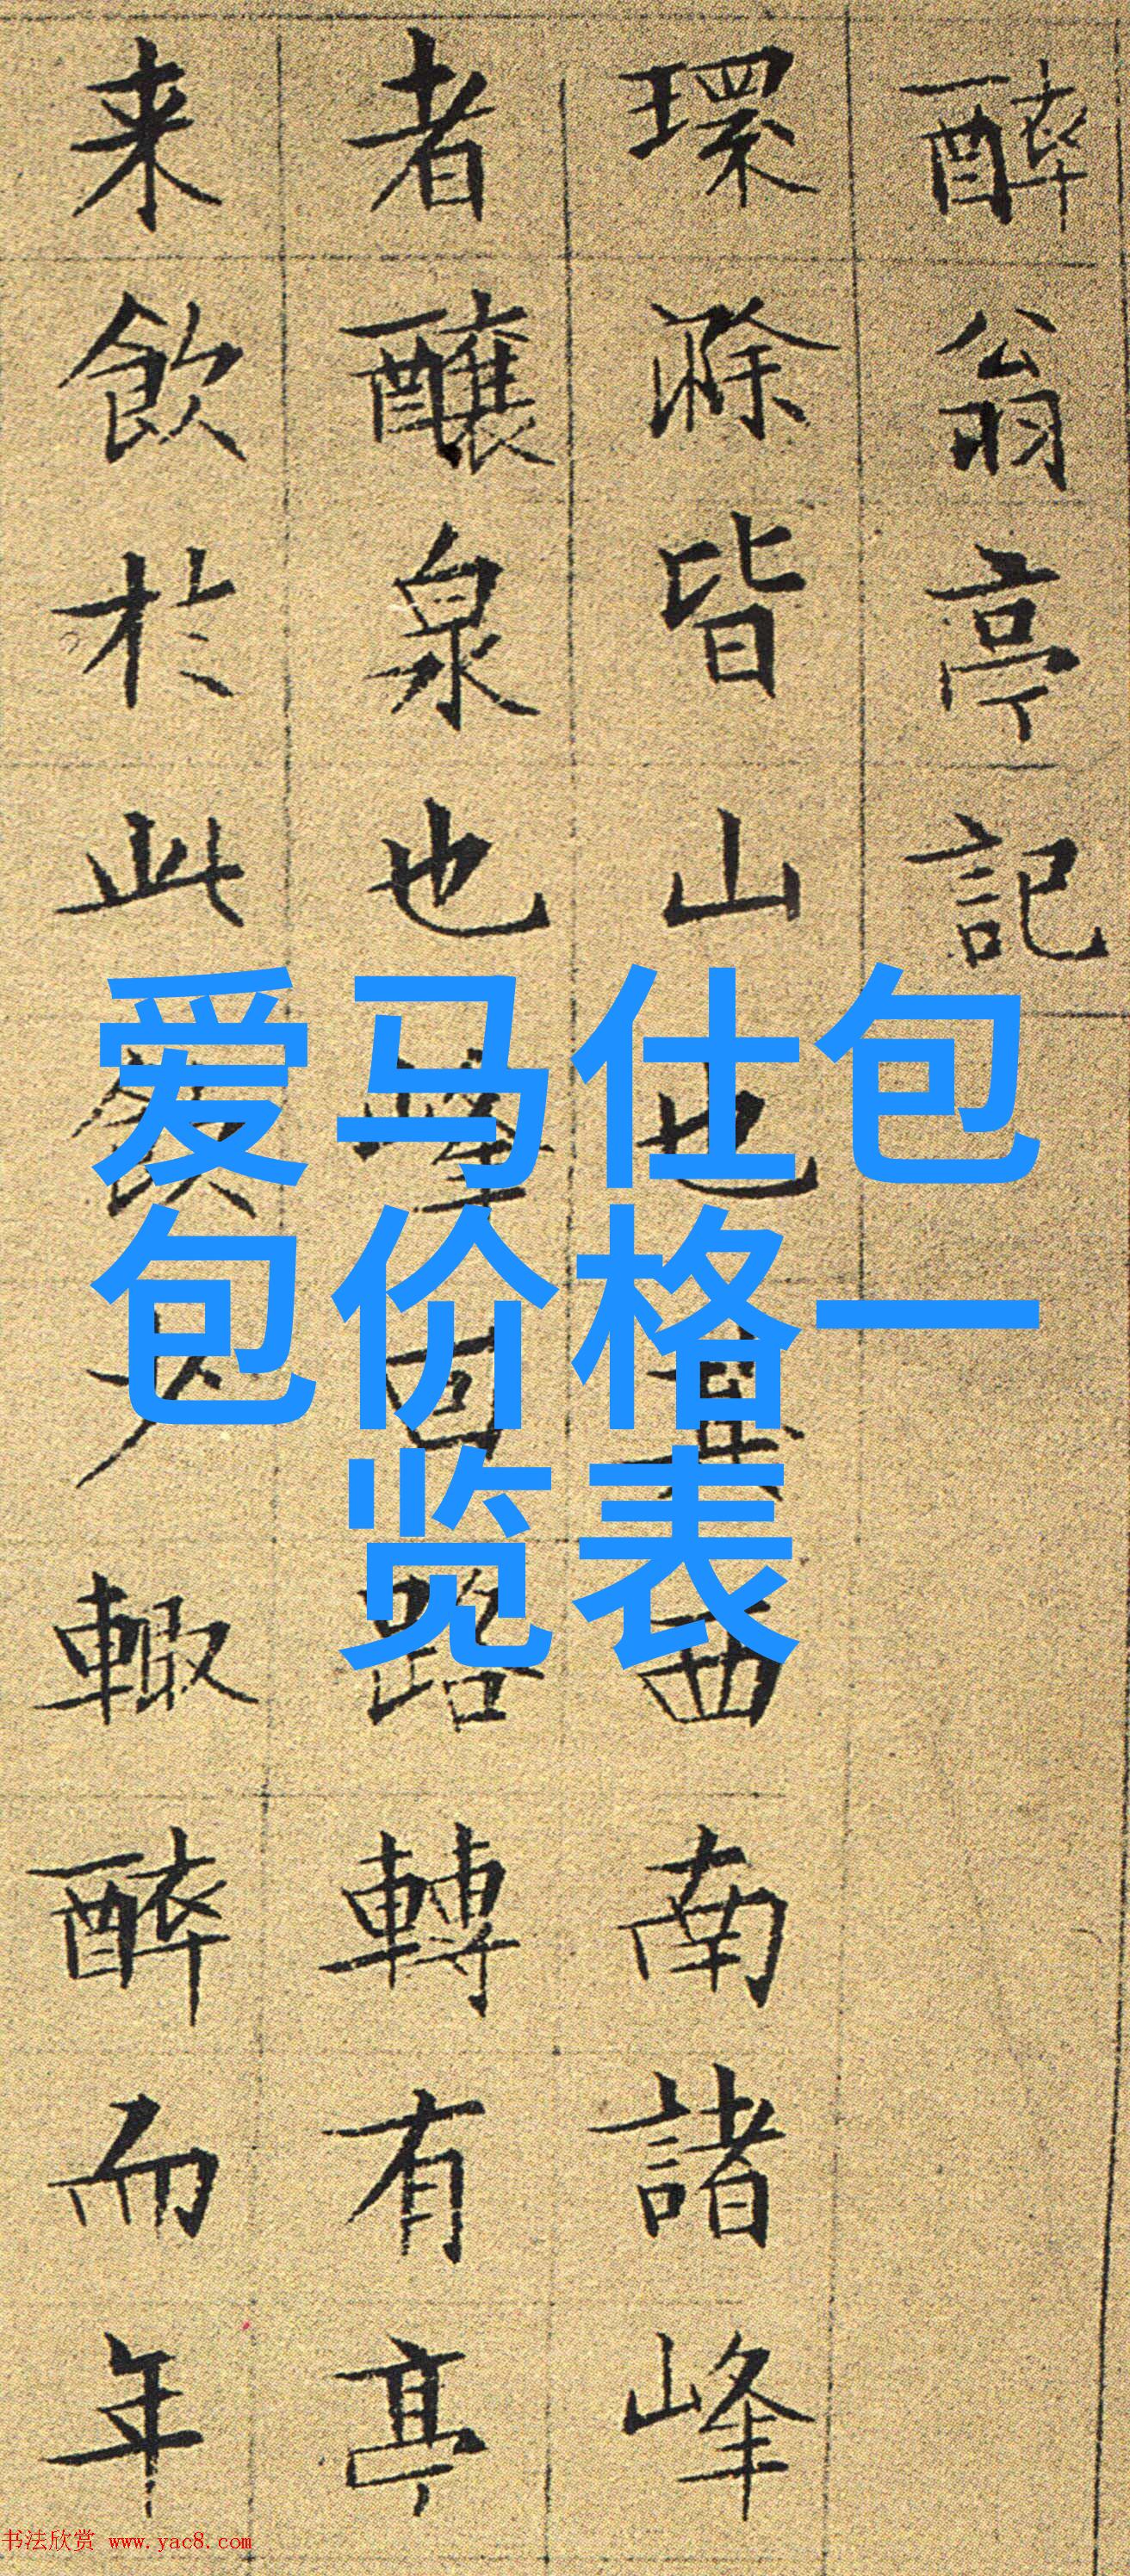 醉翁亭記
環滁皆山也其西南諸峰
者釀泉也峰回路轉有亭
来飲於此飲少輒醉而年
爱马仕包
包价格一
览表
书法欣赏 www.yac8.com